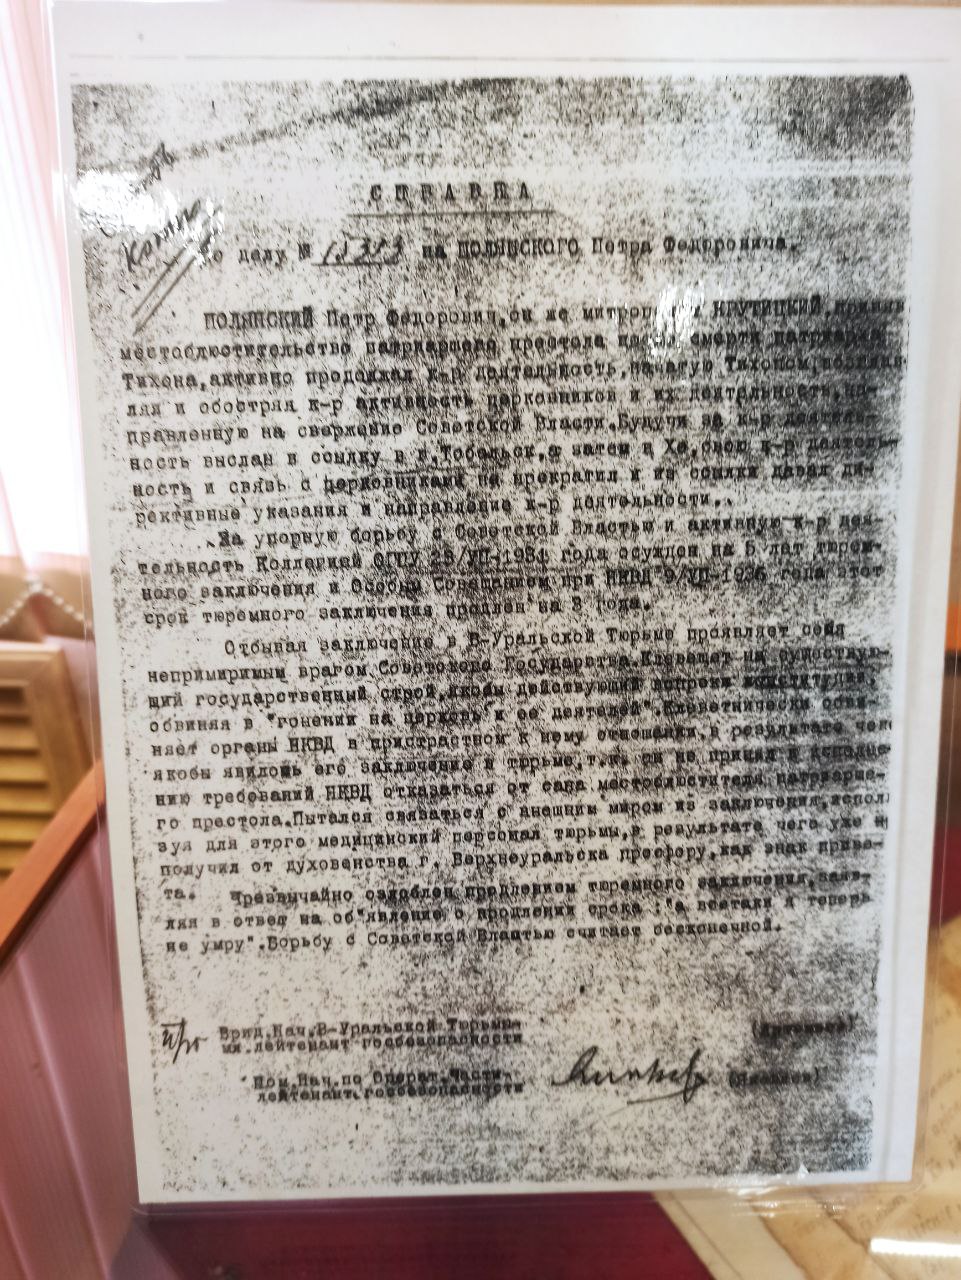 СПРАВКА
по делу № на ПОЛЯНСКОГО Петра Федоровича.
ПОЛЯНСКИЙ Петр Федорович, он же митрополит КРУТИЦКИЙ, приняв
местоблюстительство патриаршего престола после смерти патриарха
Тихона, активно продолжал к-р деятельность, начатую Тихоном,
ляя и обостряя к-р активность церковников и их деятельность, на-
правленную на свержение Советской Власти. Будучи за к-р деятель-
ность выслан в ссылку в г. Тобольск, а затем в Хе, свою к-р деятель-
ность и связь с церковниками не прекратил и из ссылки давал ди-
рективные указания и направление к-р деятельности.
За упорную борьбу с Советской Властью и активную к-р дея-
тельность Коллегией ОГПУ года осужден на 5 лет тюрем-
ного заключения и Особым Совещанием при НКВД 9/УП-1936 года этот
срок тюремного заключения продлен на 3 года.
Отбывая заключение в В-Уральской Тюрьме проявляет себя
непримиримым врагом Советского Государства. Клевещет на существую-
щий государственный строй, якобы действующий вопреки конституции,
обвиняя в "гонении на церковь и ее деятелей". Клеветнически обви-
няет органы НКВД в пристрастном к нему отношении, в результате чего
якобы явилось его заключение в тюрьме, т.к. он не принял к исполне-
нию требований НКВД отказаться от сана местоблюстителя патриарше-
го престола. Пытался связаться с внешним миром из заключения, исполь
зуя для этого медицинский персонал тюрьмы, в результате чего уже
получил от духовенства г. Верхнеуральска просфору, как знак приве-
та. Чрезвычайно озлоблен продлением тюремного заключения, заяв-
ляя в ответ на об"явление о продлении срока: "а всетаки я теперь
не умру". Борьбу с Советской Властью считает бесконечной.
Врид. Нач. В-Уральской Тюрьмы
мл. лейтенант госбезопасности
Пом. Нач. по Операт. Части
лейтенант госбезопасности